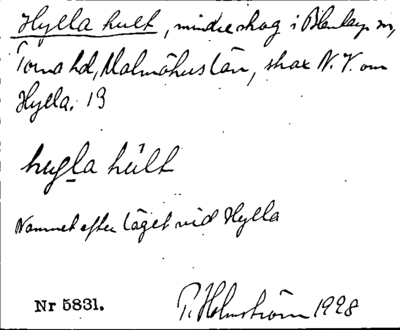 Hylla hult, mindre skog i Blentarps sn,
Torna hd, Malmöhus län, strax N.V. om
Hylla. 19
hyla hult
Namnet efter läget vid Hylla
Nr 5831. P. Holmström 1928